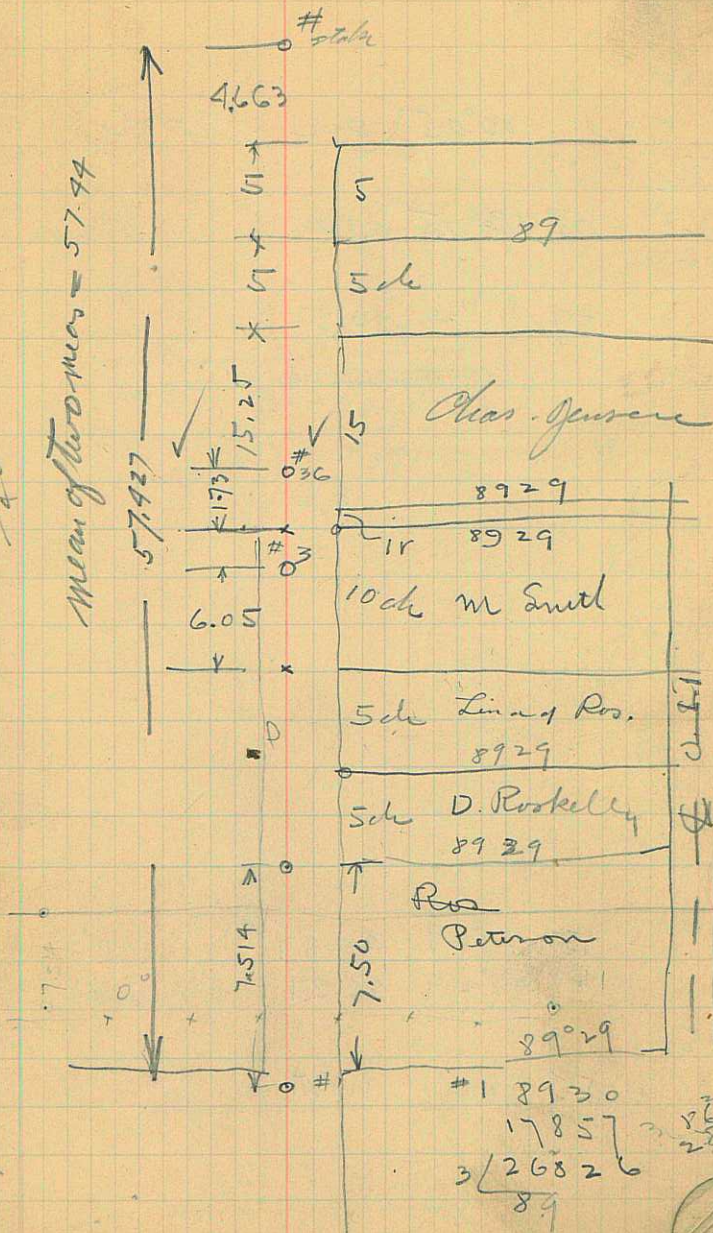 # stake
4.663
5
5
89
5
5 ch
mean of two meas = 57.44
57.427
15.25
15
Chas. Jensen
#36
1.73
8929
1r
8929
#3
10 ch M Smith
6.05
5 ch Lina Ros.
8929
5 ch D. Roskelly
8929
Ros
Peterson
7.514
7.50
89°29
#
#1 8930
17857
3/26826
89